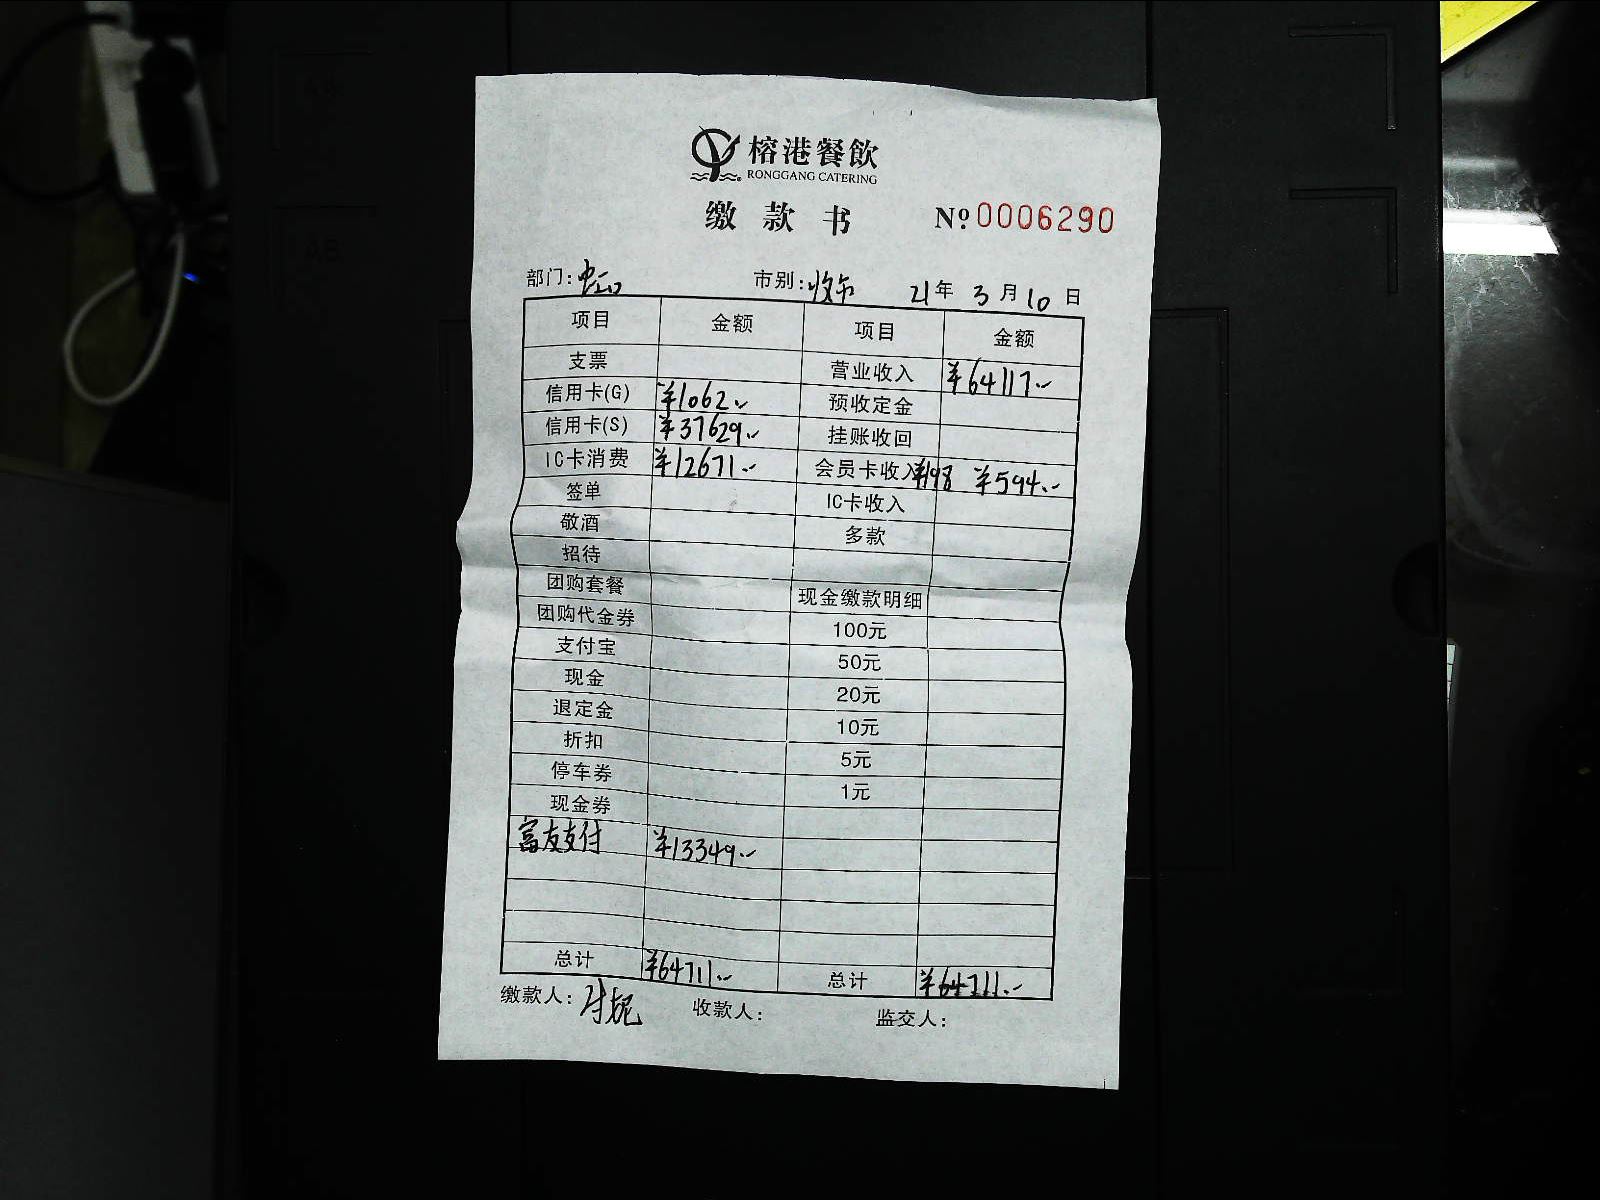 榕港餐飲
RONGGANG CATERING
缴款书 №0006290
部门: 市别:收市 21年3月10日
项目 金额 项目 金额
支票 营业收入 ¥64117.-
信用卡(G) ¥1062.- 预收定金
信用卡(S) ¥37629.- 挂账收回
IC卡消费 ¥12671.- 会员卡收入 ¥198 ¥594.-
签单 IC卡收入
敬酒 多款
招待
团购套餐 现金缴款明细
团购代金券 100元
支付宝 50元
现金 20元
退定金 10元
折扣 5元
停车券 1元
现金券
富友支付 ¥13349.-
总计 ¥64711.- 总计 ¥64711.-
缴款人: 收款人: 监交人: